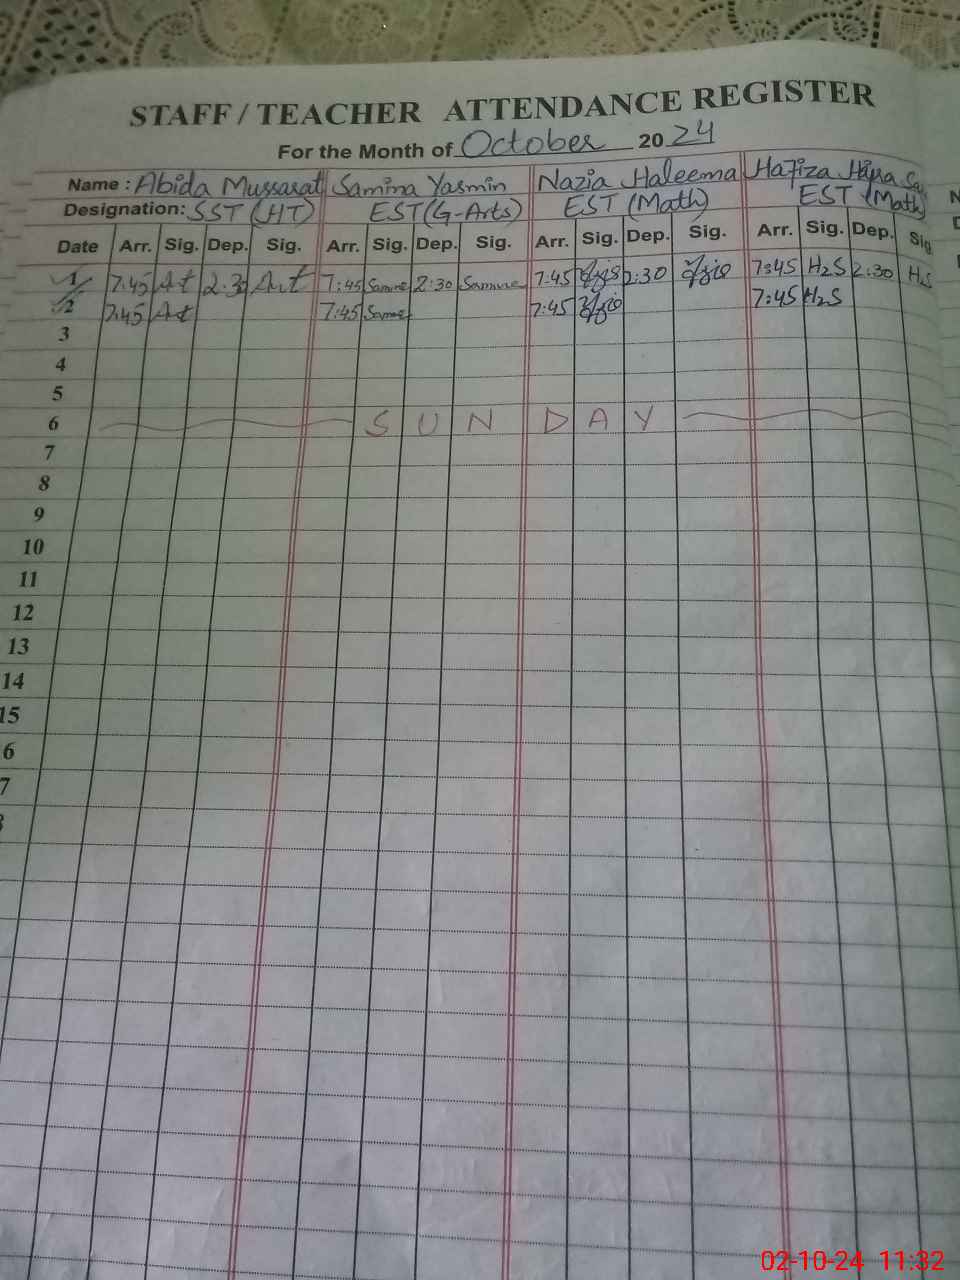 STAFF / TEACHER ATTENDANCE REGISTER
For the Month of October 2024
Name : Abida Mussarat Samina Yasmin Nazia Haleema Hafiza
Designation: SST (HT) EST (G-Arts) EST (Math) EST (Math)
Date Arr. Sig. Dep. Sig. Arr. Sig. Dep. Sig. Arr. Sig. Dep. Sig. Arr. Sig. Dep. Sig
1 7.45 2.30 7:45 2:30 7:45 2:30 7:45 H2S 2:30 H2S
2 7:45 7:45 7:45 7:45 H2S
3
4
5
6 SUNDAY
7
8
9
10
11
12
13
14
15
6
7
02-10-24 11:32